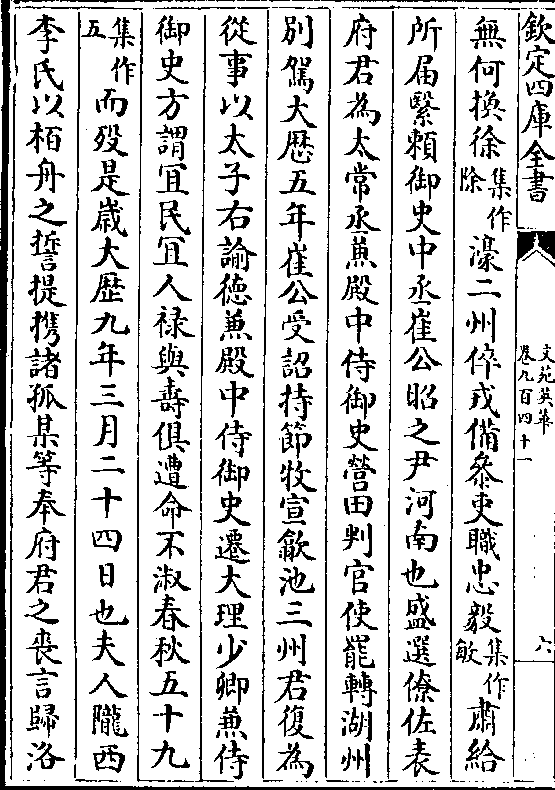 欽定四庫全書
文苑英華
卷九百四十一
六
無何換徐集作除濠二州倅戎備叅吏職忠毅集作敏肅給
所届緊頼御史中丞崔公昭之尹河南也盛選僚佐表
府君為太常丞兼殿中侍御史營田判官使罷轉湖州
別駕大厯五年崔公受詔持節牧宣歙池三州君復為
從事以太子右諭徳兼殿中侍御史遷大理少卿兼侍
御史方謂冝民冝人禄與壽俱遭命不淑春秋五十九
集作五而殁是嵗大厯九年三月二十四日也夫人隴西
李氏以栢舟之誓提携諸孤某等奉府君之喪言歸洛